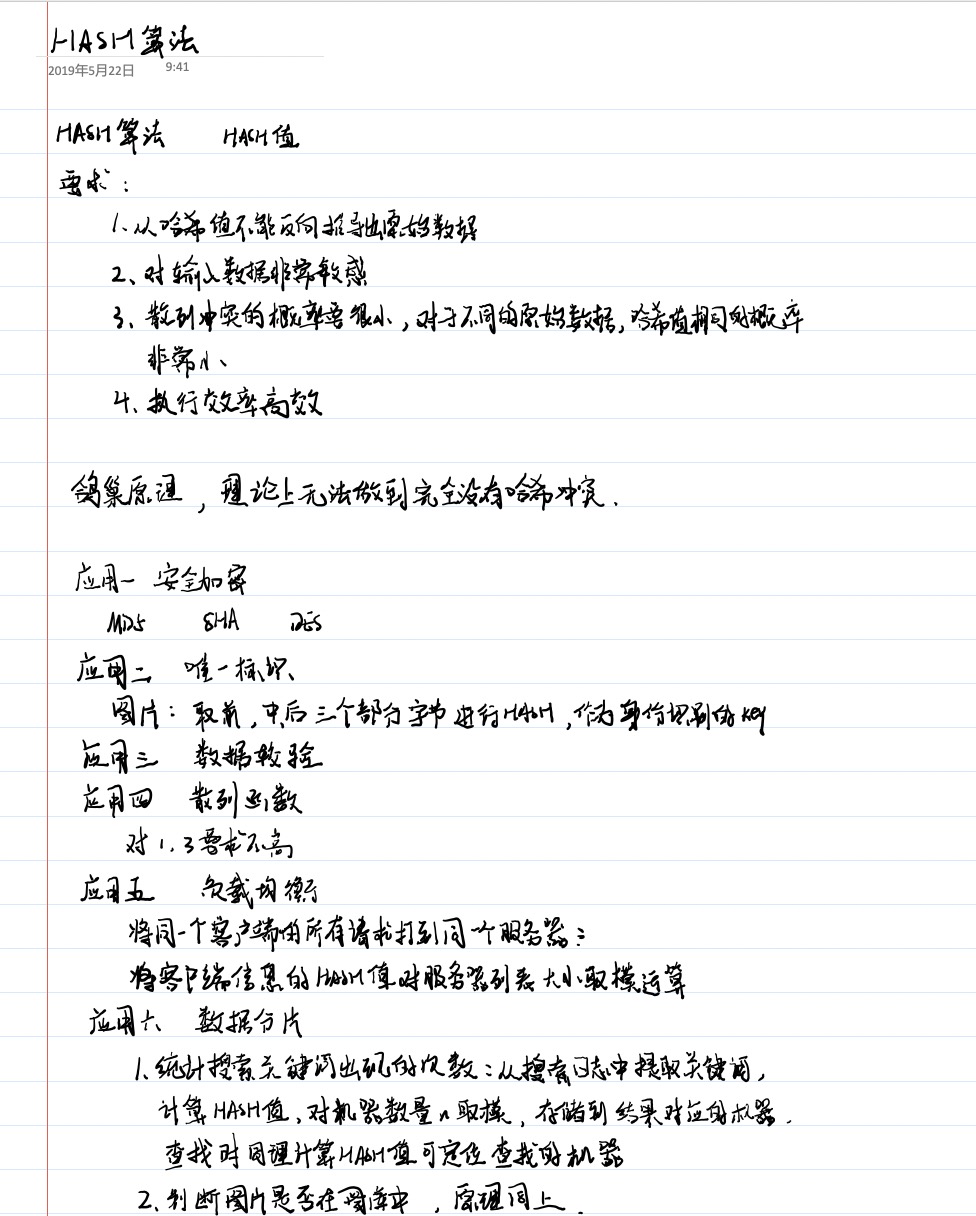 HASH算法
2019年5月22日 9:41
HASH算法 HASH值
要求：
1、从哈希值不能反向推导出原始数据
2、对输入数据非常敏感
3、散列冲突的概率要很小，对于不同的原始数据，哈希值相同的概率
非常小、
4、执行效率高效
鸽巢原理，理论上无法做到完全没有哈希冲突.
应用一 安全加密
MD5 SHA DES
应用二 唯一标识、
图片：取前，中后三个部分字节进行HASH，作为身份识别的key
应用三 数据校验
应用四 散列函数
对1,3要求不高
应用五 负载均衡
将同一个客户端的所有请求打到同一个服务器：
将客户端信息的HASH值对服务器列表大小取模运算
应用六 数据分片
1、统计搜索关键词出现的次数：从搜索日志中提取关键词，
计算HASH值、对机器数量n取模，存储到结果对应的机器.
查找时同理计算HASH值可定位查找的机器
2、判断图片是否在图库中，原理同上.